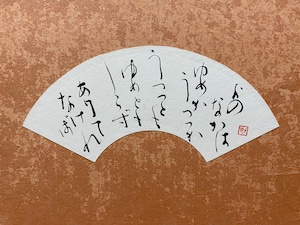 よのなかは
ゆめか
うつつか
うつつとも
ゆめとも
しらず
ありてなければ